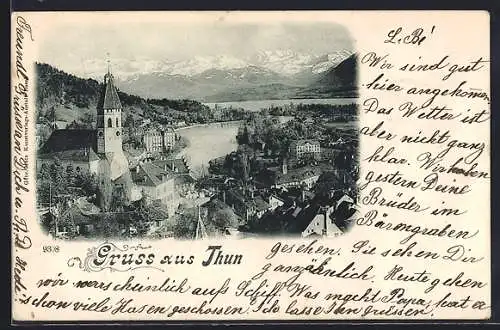 L. Bé!
Wir sind gut
hier angekommen.
Das Wetter ist
aber nicht ganz
klar. Wir haben
gestern Deine
Brüder im
Bärengraben
gesehen. Sie sehen Dir
ganz ähnlich. Heute gehen
wir wahrscheinlich auf's Schiff. Was macht Papa, hat er
schon viele Hasen geschossen. Ich lasse Ihn grüssen.
Freund
9308
Gruss aus Thun